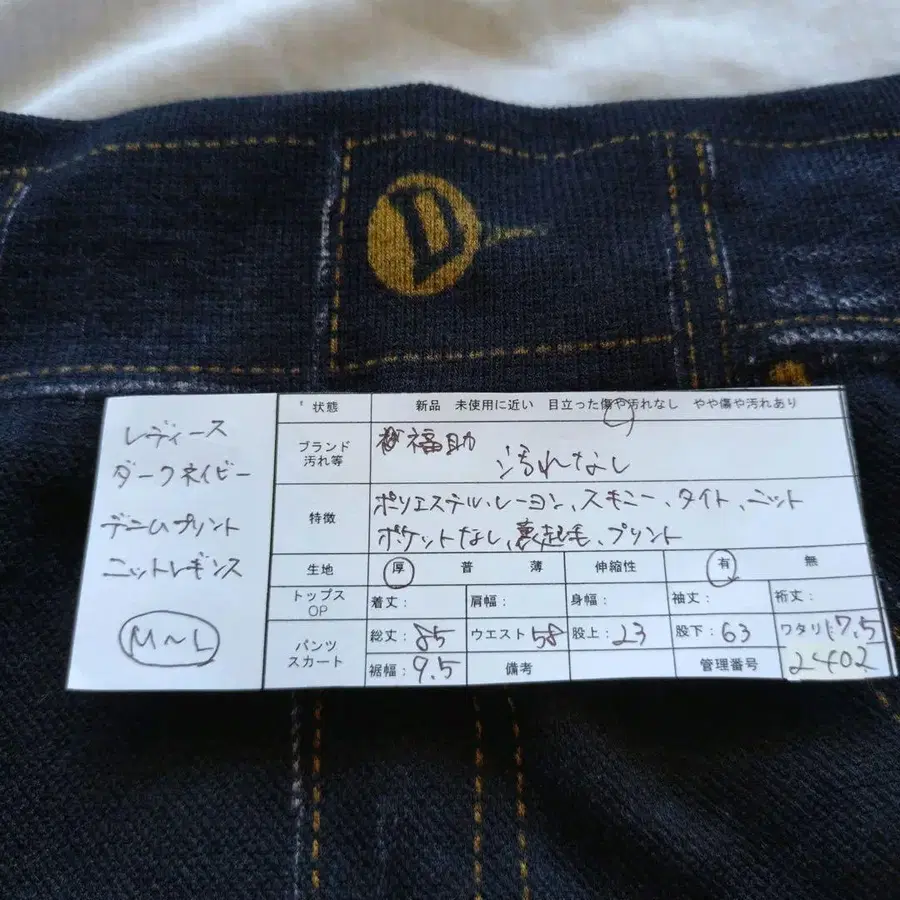 D
レディース
ダークネイビー
デニムプリント
ニットレギンス
M~L
状態 新品 未使用に近い 目立った傷や汚れなし やや傷や汚れあり
ブランド 福助
汚れ等 汚れなし
特徴 ポリエステル、レーヨン、スキニー、タイト、ニット
ポケットなし、裏起毛、プリント
生地 厚 普 薄 伸縮性 有 無
トップス
OP 着丈: 肩幅: 身幅: 袖丈: 裄丈:
パンツ
スカート 総丈: 85 ウエスト 58 股上: 23 股下: 63 ワタリ 17.5
裾幅: 9.5 備考 管理番号 2402